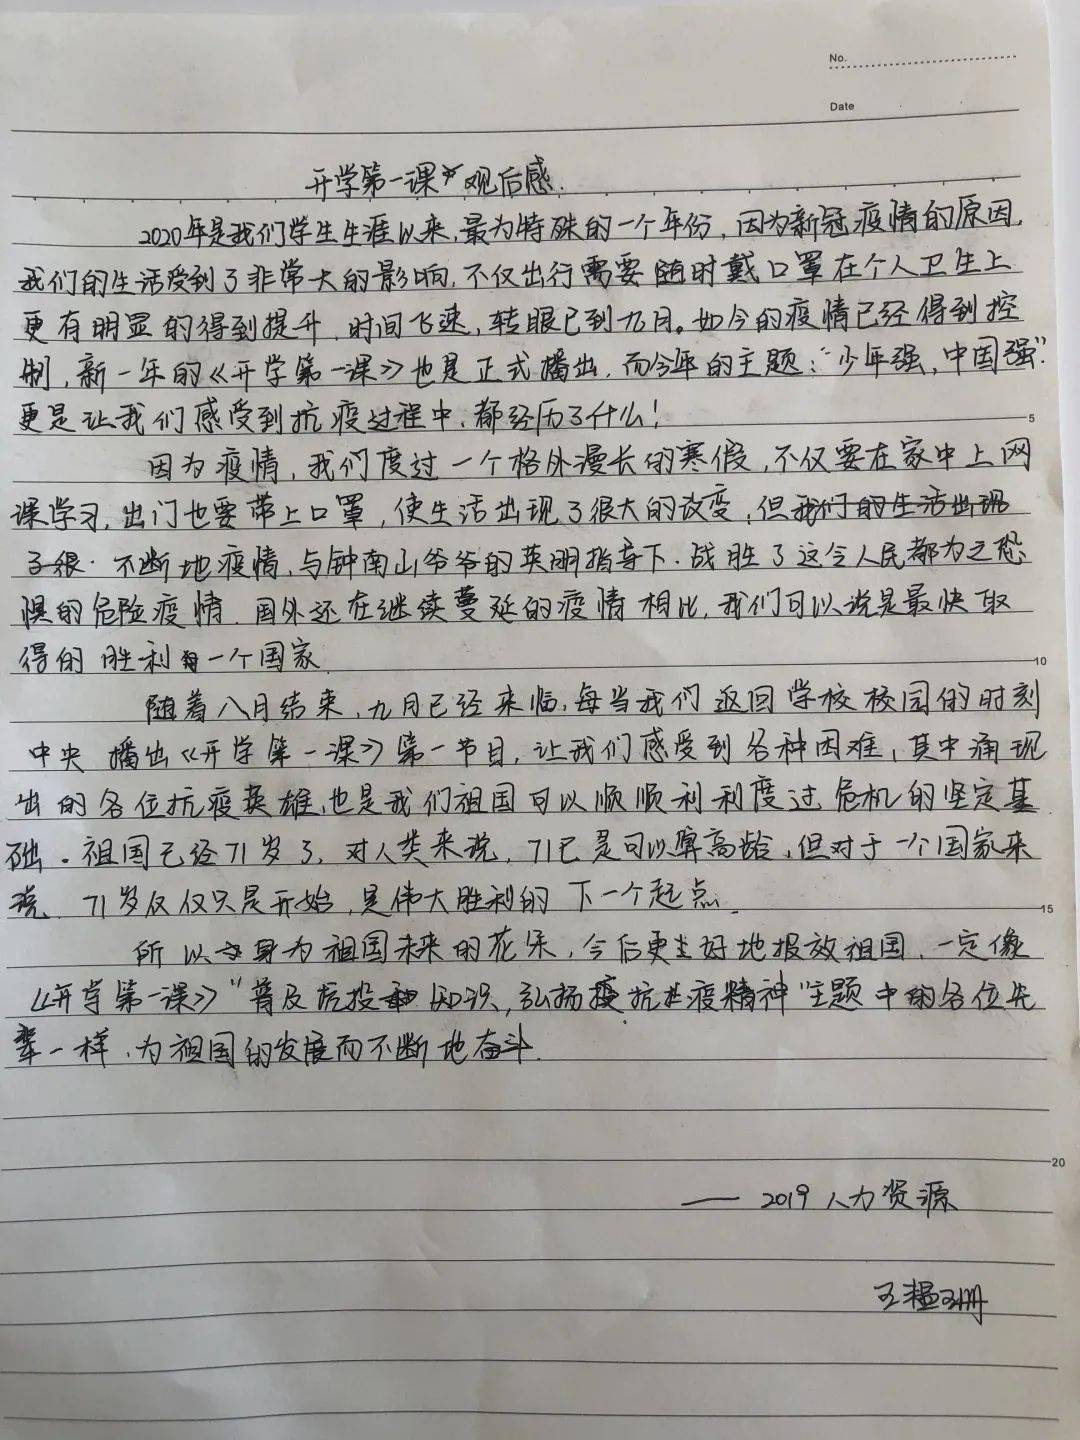 No.
Date
开学第一课》观后感.
2020年是我们学生生涯以来,最为特殊的一个年份,因为新冠疫情的原因,
我们的生活受到了非常大的影响,不仅出行需要随时戴口罩在个人卫生上
更有明显的得到提升,时间飞速,转眼已到九月。如今的疫情已经得到控
制,新一年的《开学第一课》也是正式播出,而今年的主题:“少年强,中国强”.
更是让我们感受到抗疫过程中,都经历了什么!
5
因为疫情,我们度过一个格外漫长的寒假,不仅要在家中上网
课学习,出门也要带上口罩,使生活出现了很大的改变,但我们的生活出现
了很.不断地疫情,与钟南山爷爷的英明指导下.战胜了这令人民都为之恐
惧的危险疫情.国外还在继续蔓延的疫情相比,我们可以说是最快取
得的胜利每一个国家.
10
随着八月结束,九月已经来临,每当我们返回学校校园的时刻
中央播出《开学第一课》第一节目,让我们感受到各种困难,其中涌现
出的各位抗疫英雄,也是我们祖国可以顺顺利利度过危机的坚定基
础。祖国已经71岁了,对人类来说,71已是可以算高龄,但对于一个国家来
说,71岁仅仅只是开始,是伟大胜利的下一个起点.
15
所以身为祖国未来的花朵,今后更好地报效祖国,一定像
《开学第一课》“普及抗投知识,弘扬抗疫精神”主题中的各位先
辈一样,为祖国的发展而不断地奋斗.
20
—— 2019人力资源